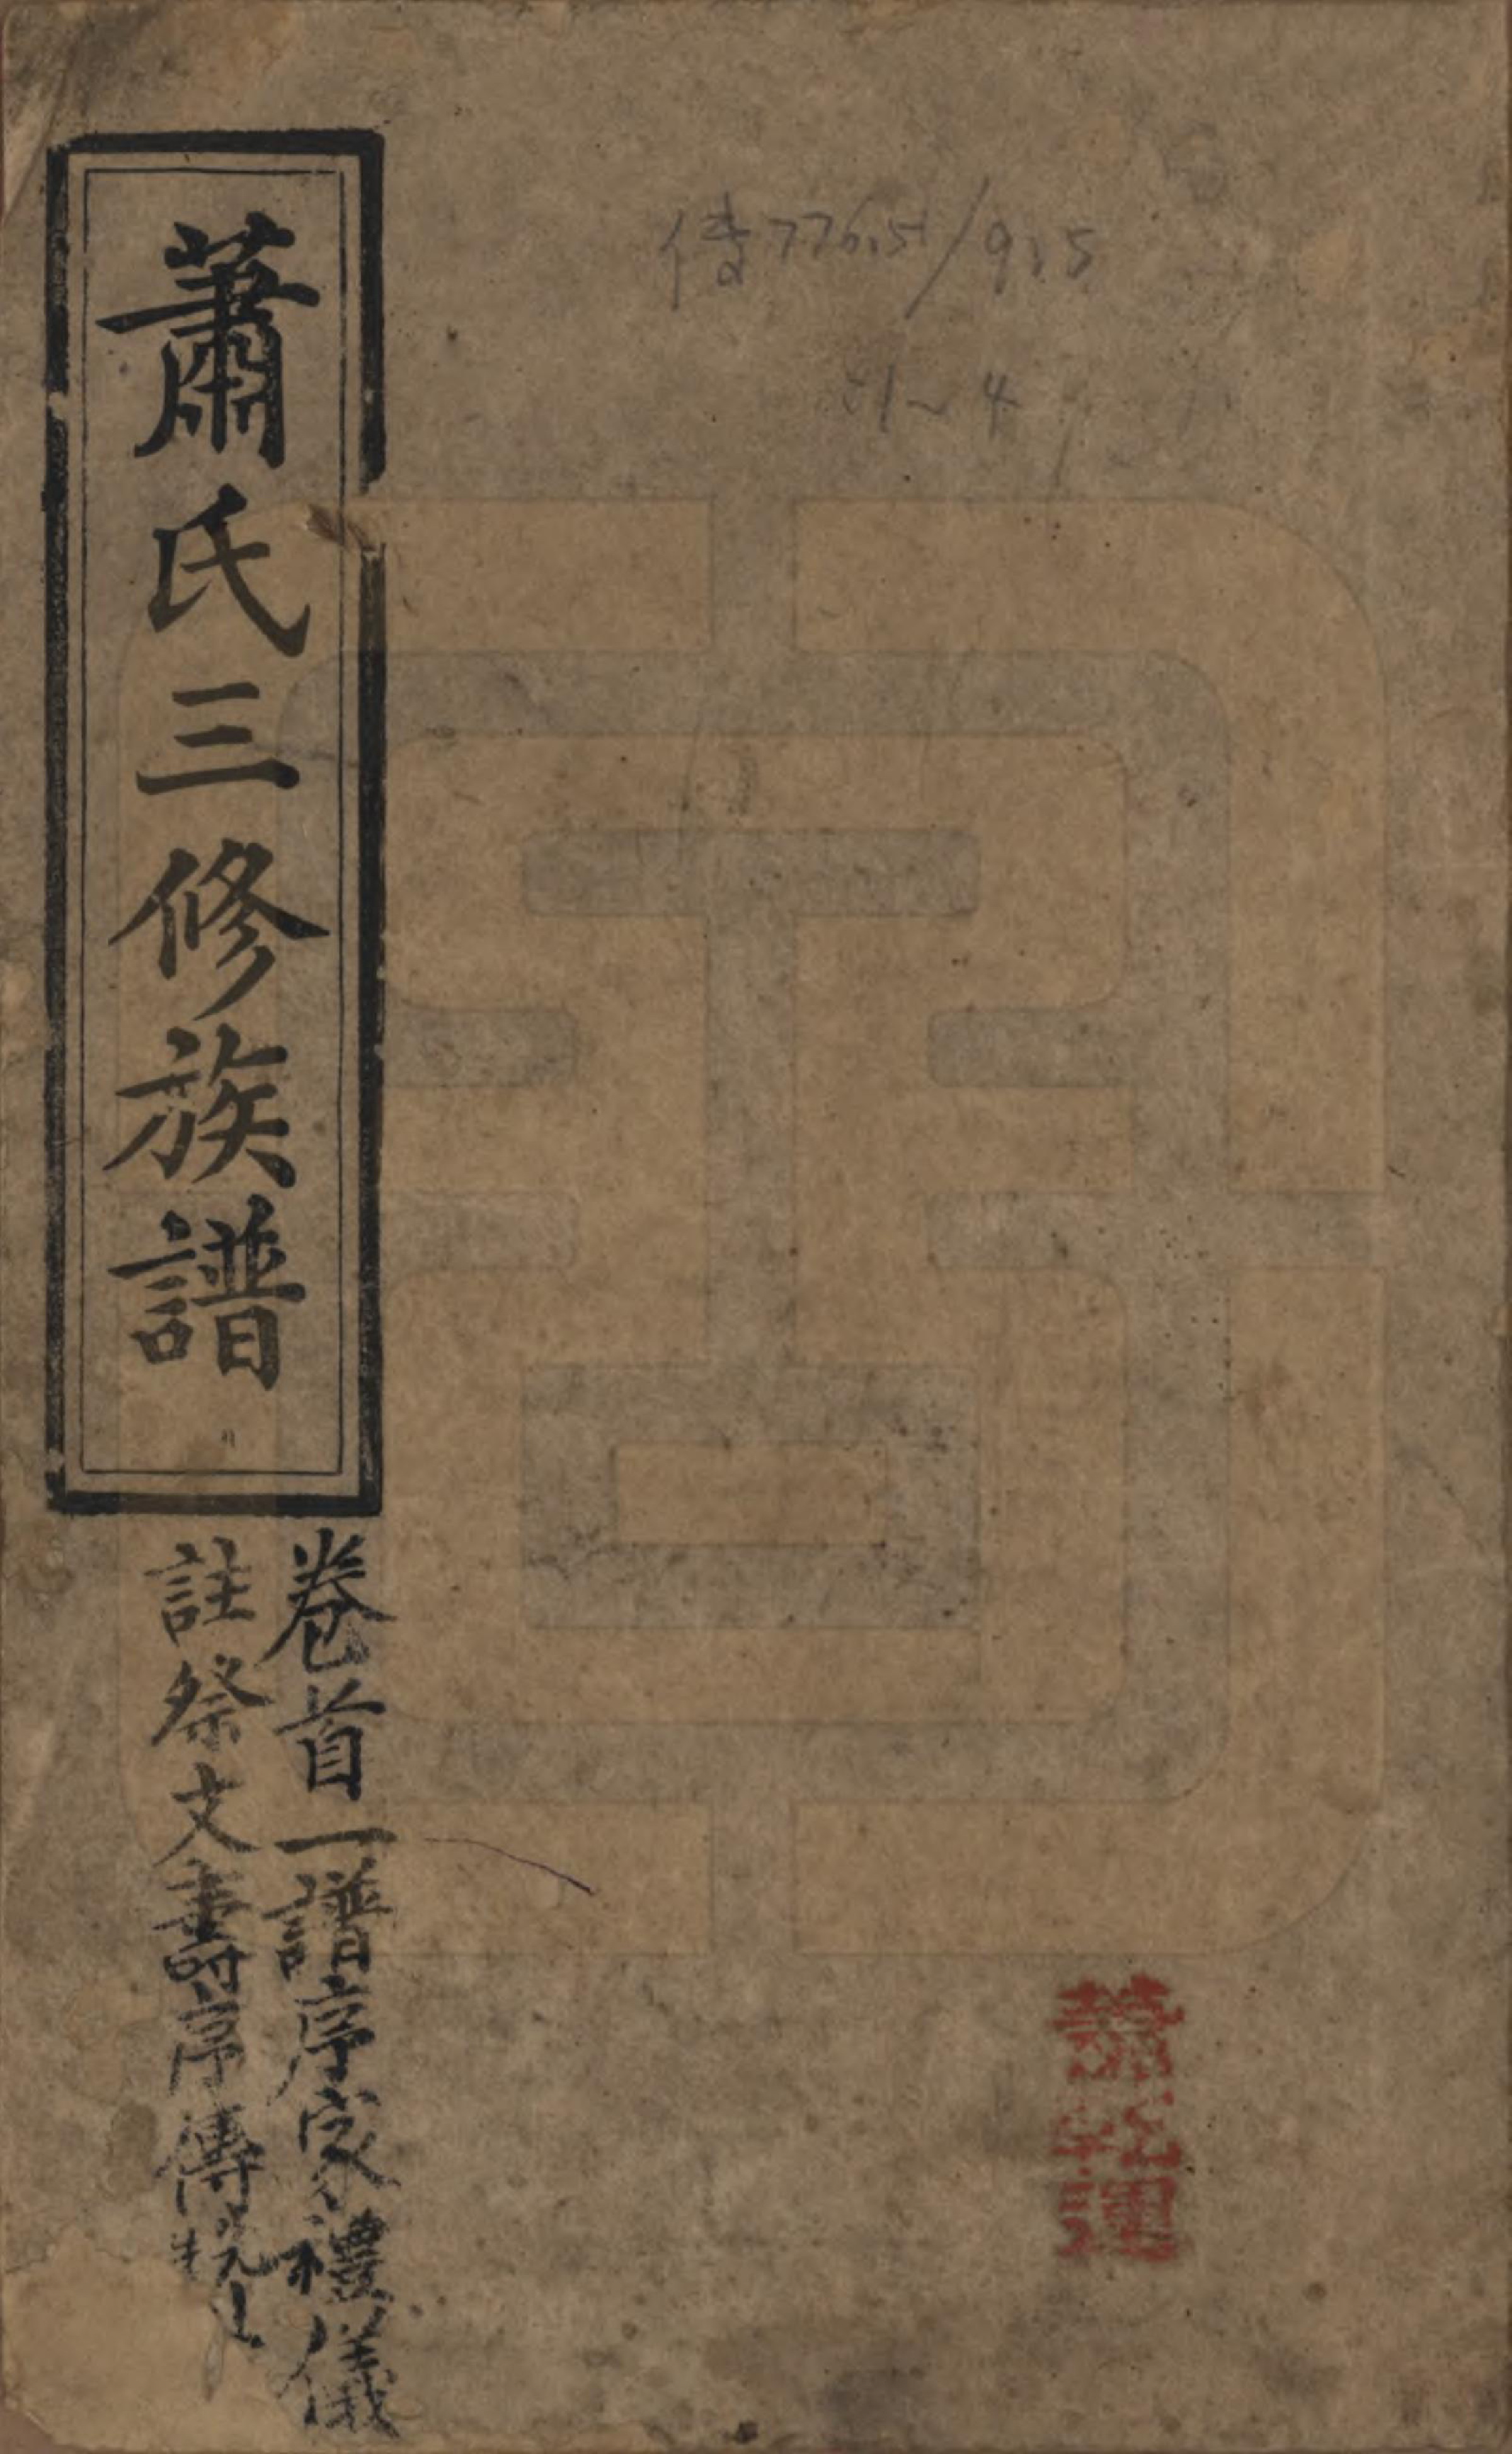 蕭氏三修族譜
卷首一譜序家禮儀
註祭文壽序傳
傳776.5/915
:1~4